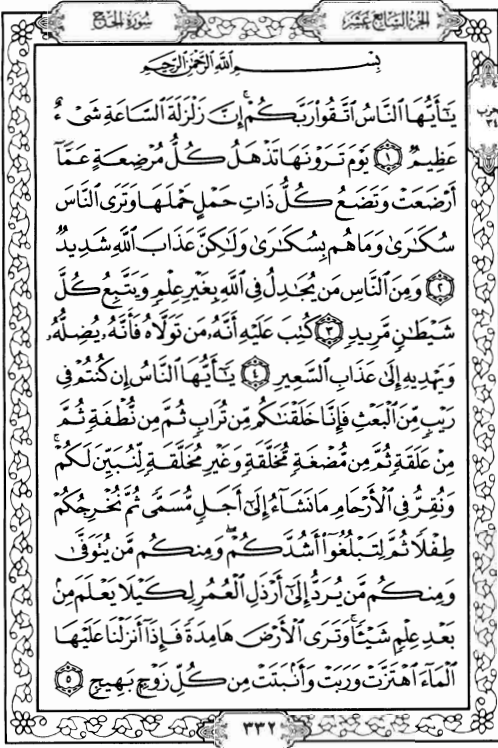 سُورَةُ الحَجِّ الجُزْءُ السَّابِعَ عَشَرَ
بِسْمِ ٱللَّهِ ٱلرَّحْمَٰنِ ٱلرَّحِيمِ
يَٰٓأَيُّهَا ٱلنَّاسُ ٱتَّقُوا۟ رَبَّكُمْ ۚ إِنَّ زَلْزَلَةَ ٱلسَّاعَةِ شَىْءٌ
عَظِيمٌ ١ يَوْمَ تَرَوْنَهَا تَذْهَلُ كُلُّ مُرْضِعَةٍ عَمَّآ
أَرْضَعَتْ وَتَضَعُ كُلُّ ذَاتِ حَمْلٍ حَمْلَهَا وَتَرَى ٱلنَّاسَ
سُكَٰرَىٰ وَمَا هُم بِسُكَٰرَىٰ وَلَٰكِنَّ عَذَابَ ٱللَّهِ شَدِيدٌ
٢ وَمِنَ ٱلنَّاسِ مَن يُجَٰدِلُ فِى ٱللَّهِ بِغَيْرِ عِلْمٍ وَيَتَّبِعُ كُلَّ
شَيْطَٰنٍ مَّرِيدٍ ٣ كُتِبَ عَلَيْهِ أَنَّهُۥ مَن تَوَلَّاهُ فَأَنَّهُۥ يُضِلُّهُۥ
وَيَهْدِيهِ إِلَىٰ عَذَابِ ٱلسَّعِيرِ ٤ يَٰٓأَيُّهَا ٱلنَّاسُ إِن كُنتُمْ فِى
رَيْبٍ مِّنَ ٱلْبَعْثِ فَإِنَّا خَلَقْنَٰكُم مِّن تُرَابٍ ثُمَّ مِن نُّطْفَةٍ ثُمَّ
مِنْ عَلَقَةٍ ثُمَّ مِن مُّضْغَةٍ مُّخَلَّقَةٍ وَغَيْرِ مُخَلَّقَةٍ لِّنُبَيِّنَ لَكُمْ ۚ
وَنُقِرُّ فِى ٱلْأَرْحَامِ مَا نَشَآءُ إِلَىٰٓ أَجَلٍ مُّسَمًّى ثُمَّ نُخْرِجُكُمْ
طِفْلًا ثُمَّ لِتَبْلُغُوٓا۟ أَشُدَّكُمْ ۖ وَمِنكُم مَّن يُتَوَفَّىٰ
وَمِنكُم مَّن يُرَدُّ إِلَىٰٓ أَرْذَلِ ٱلْعُمُرِ لِكَيْلَا يَعْلَمَ مِنۢ
بَعْدِ عِلْمٍ شَيْـًٔا ۚ وَتَرَى ٱلْأَرْضَ هَامِدَةً فَإِذَآ أَنزَلْنَا عَلَيْهَا
ٱلْمَآءَ ٱهْتَزَّتْ وَرَبَتْ وَأَنۢبَتَتْ مِن كُلِّ زَوْجٍۭ بَهِيجٍ ٥
٣٣٢